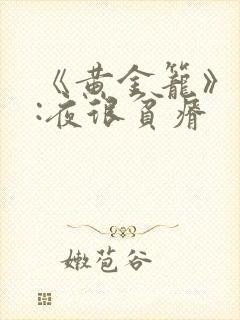 《黄金籠》
:夜很貧瘠
嫩苞谷